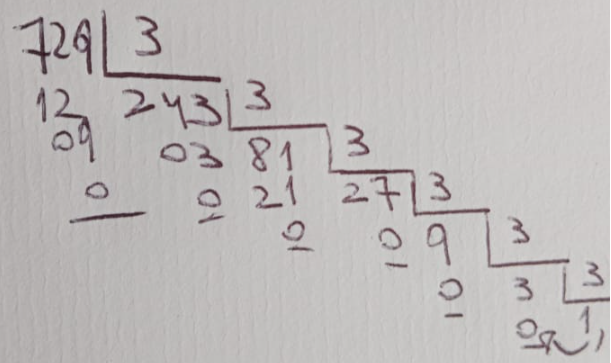 729 3
12 243 3
09 03 81 3
0 0 21 27 3
0 0 9 3
0 3 3
0 1